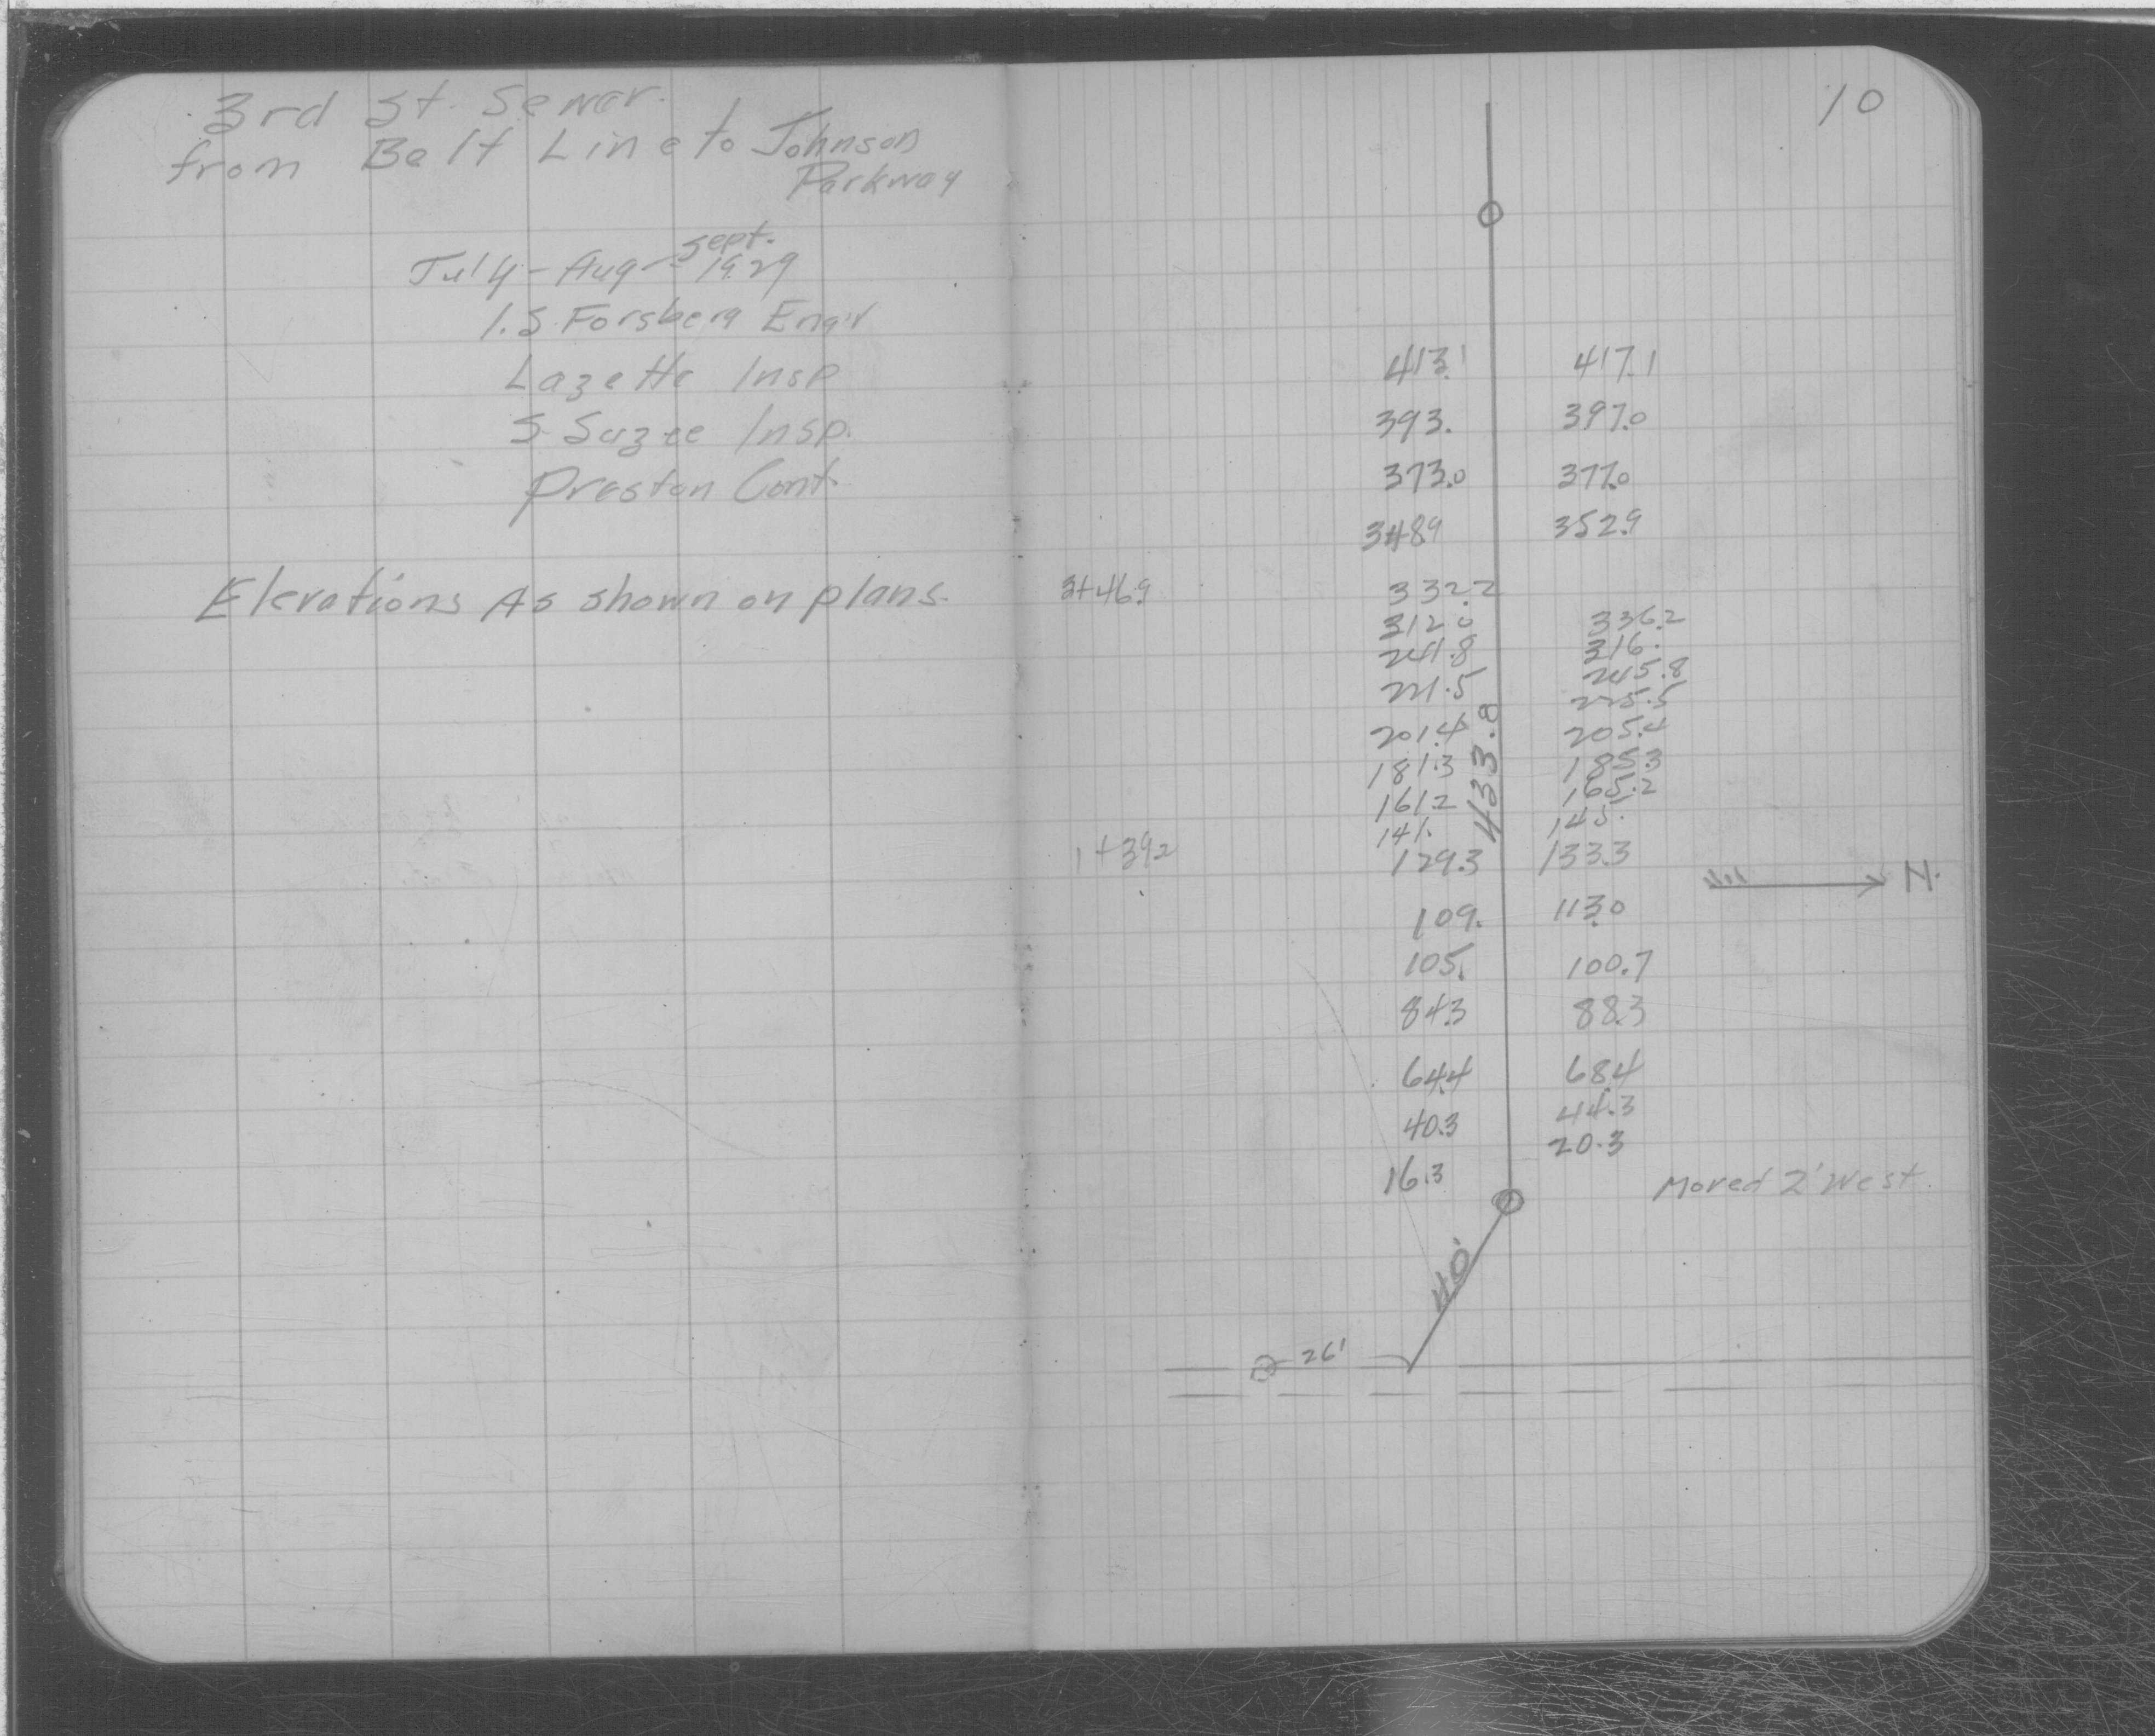 3rd St. Sewer.
from Belt Line to Johnson
Parkway
Sept.
July - Aug - 1929
I.S. Forsberg Eng'r
Lazette Insp
S Insp.
Preston Cont.
Elevations As shown on plans.
10
413.1 417.1
393. 397.0
373.0 377.0
348.9 352.9
3+46.9 332.2
312.0 336.2
241.8 316.
221.5 245.8
225.5
201.4 205.4
181.3 185.3
161.2 165.2
141. 145.
1+39.2 129.3 133.3
433.8
N.
109. 113.0
105. 100.7
84.3 88.3
64.4 68.4
40.3 44.3
20.3
16.3
Moved 2' West.
26'